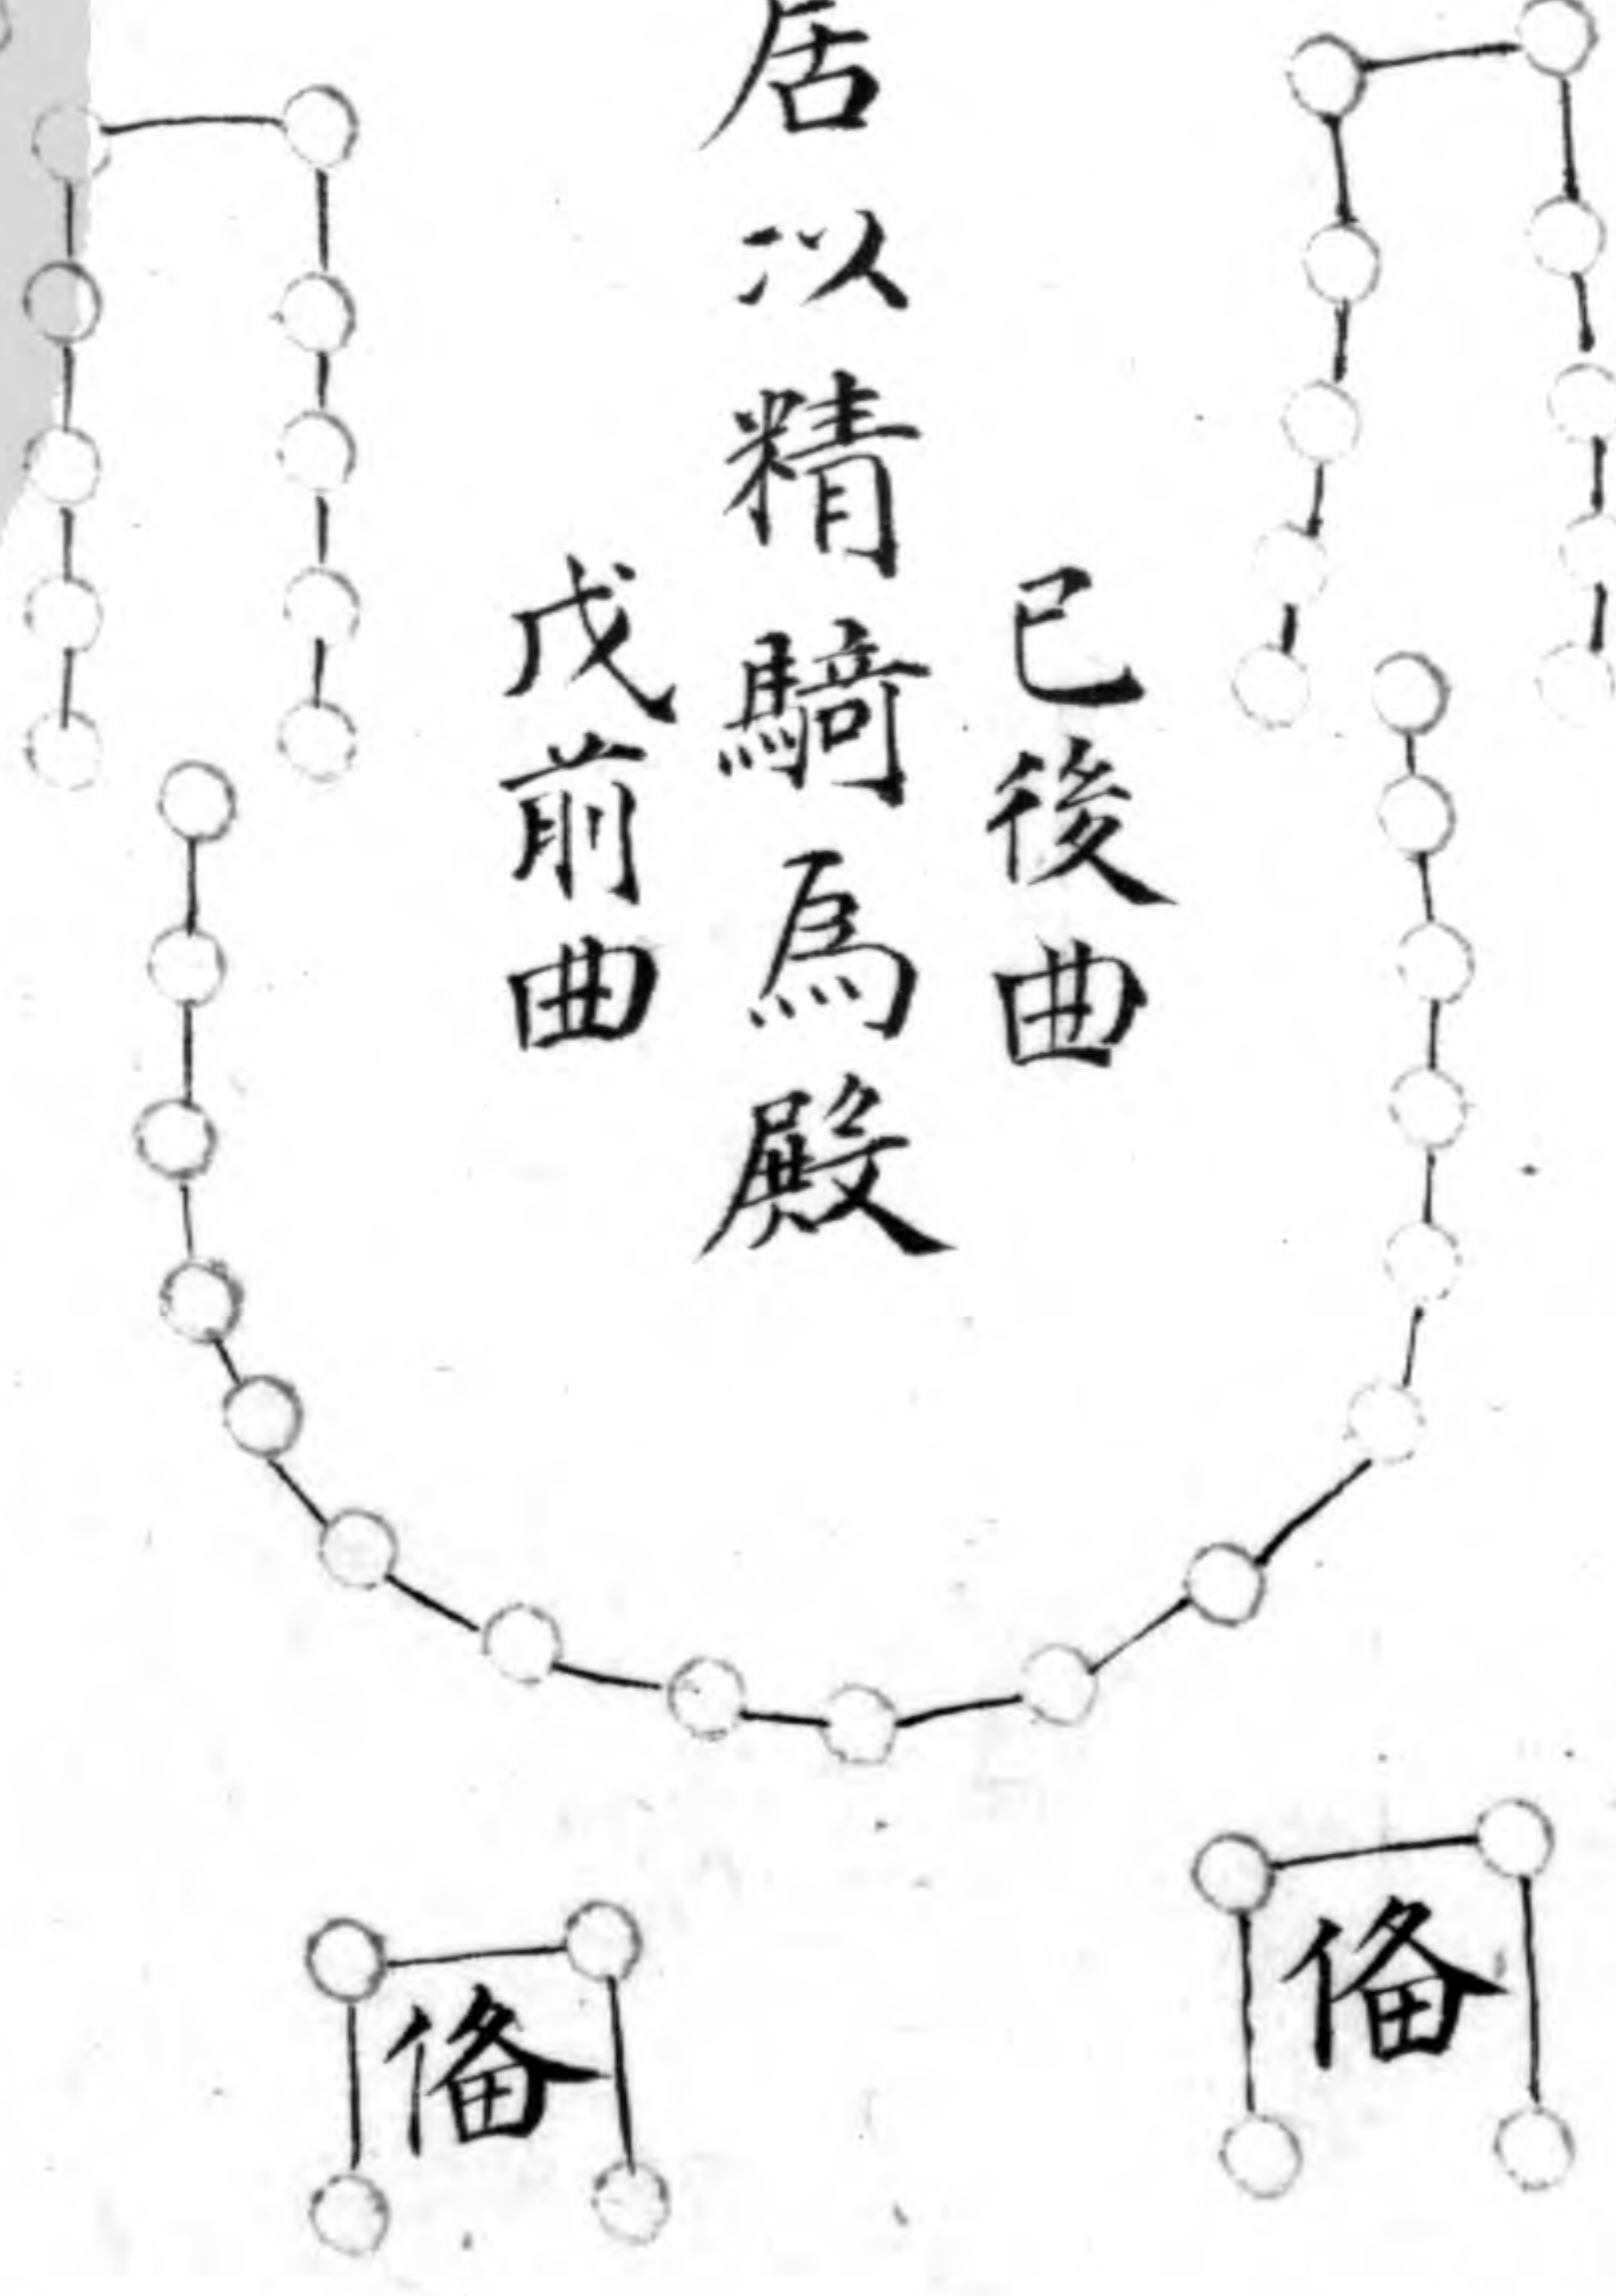 已後曲
居以精騎為殿
戊前曲
俻
俻